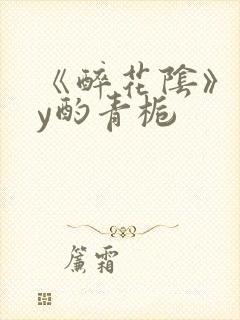 《醉花阴》
y酌青栀
簾霜